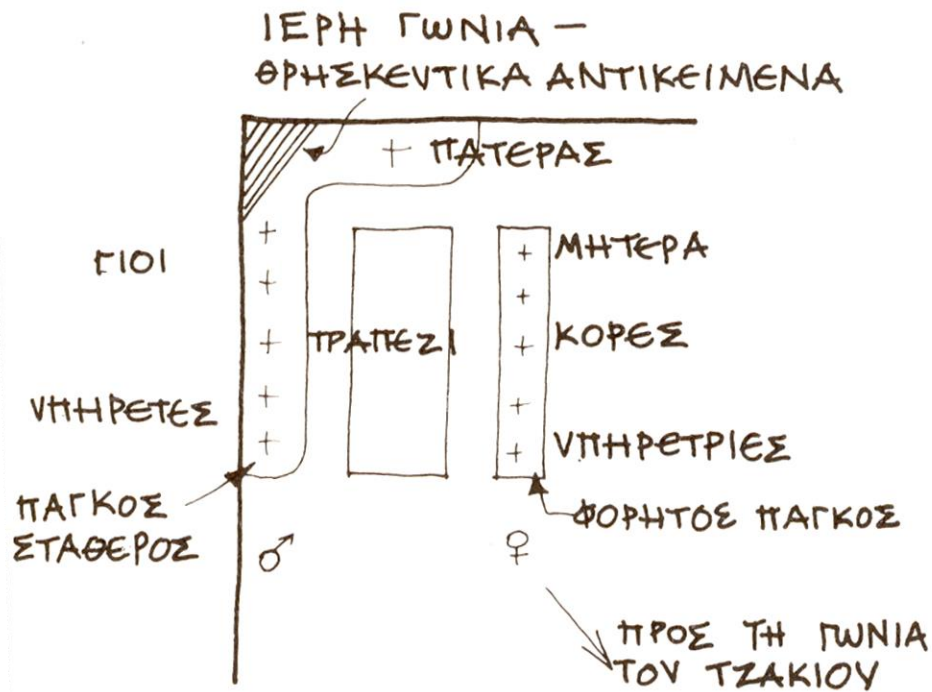 ΙΕΡΗ ΓΩΝΙΑ –
ΘΡΗΣΚΕΥΤΙΚΑ ΑΝΤΙΚΕΙΜΕΝΑ
+ ΠΑΤΕΡΑΣ
ΓΙΟΙ
ΜΗΤΕΡΑ
ΤΡΑΠΕΖΙ
ΚΟΡΕΣ
ΥΠΗΡΕΤΕΣ
ΥΠΗΡΕΤΡΙΕΣ
ΠΑΓΚΟΣ
ΣΤΑΘΕΡΟΣ
ΦΟΡΗΤΟΣ ΠΑΓΚΟΣ
♂ ♀
ΠΡΟΣ ΤΗ ΓΩΝΙΑ
ΤΟΥ ΤΖΑΚΙΟΥ